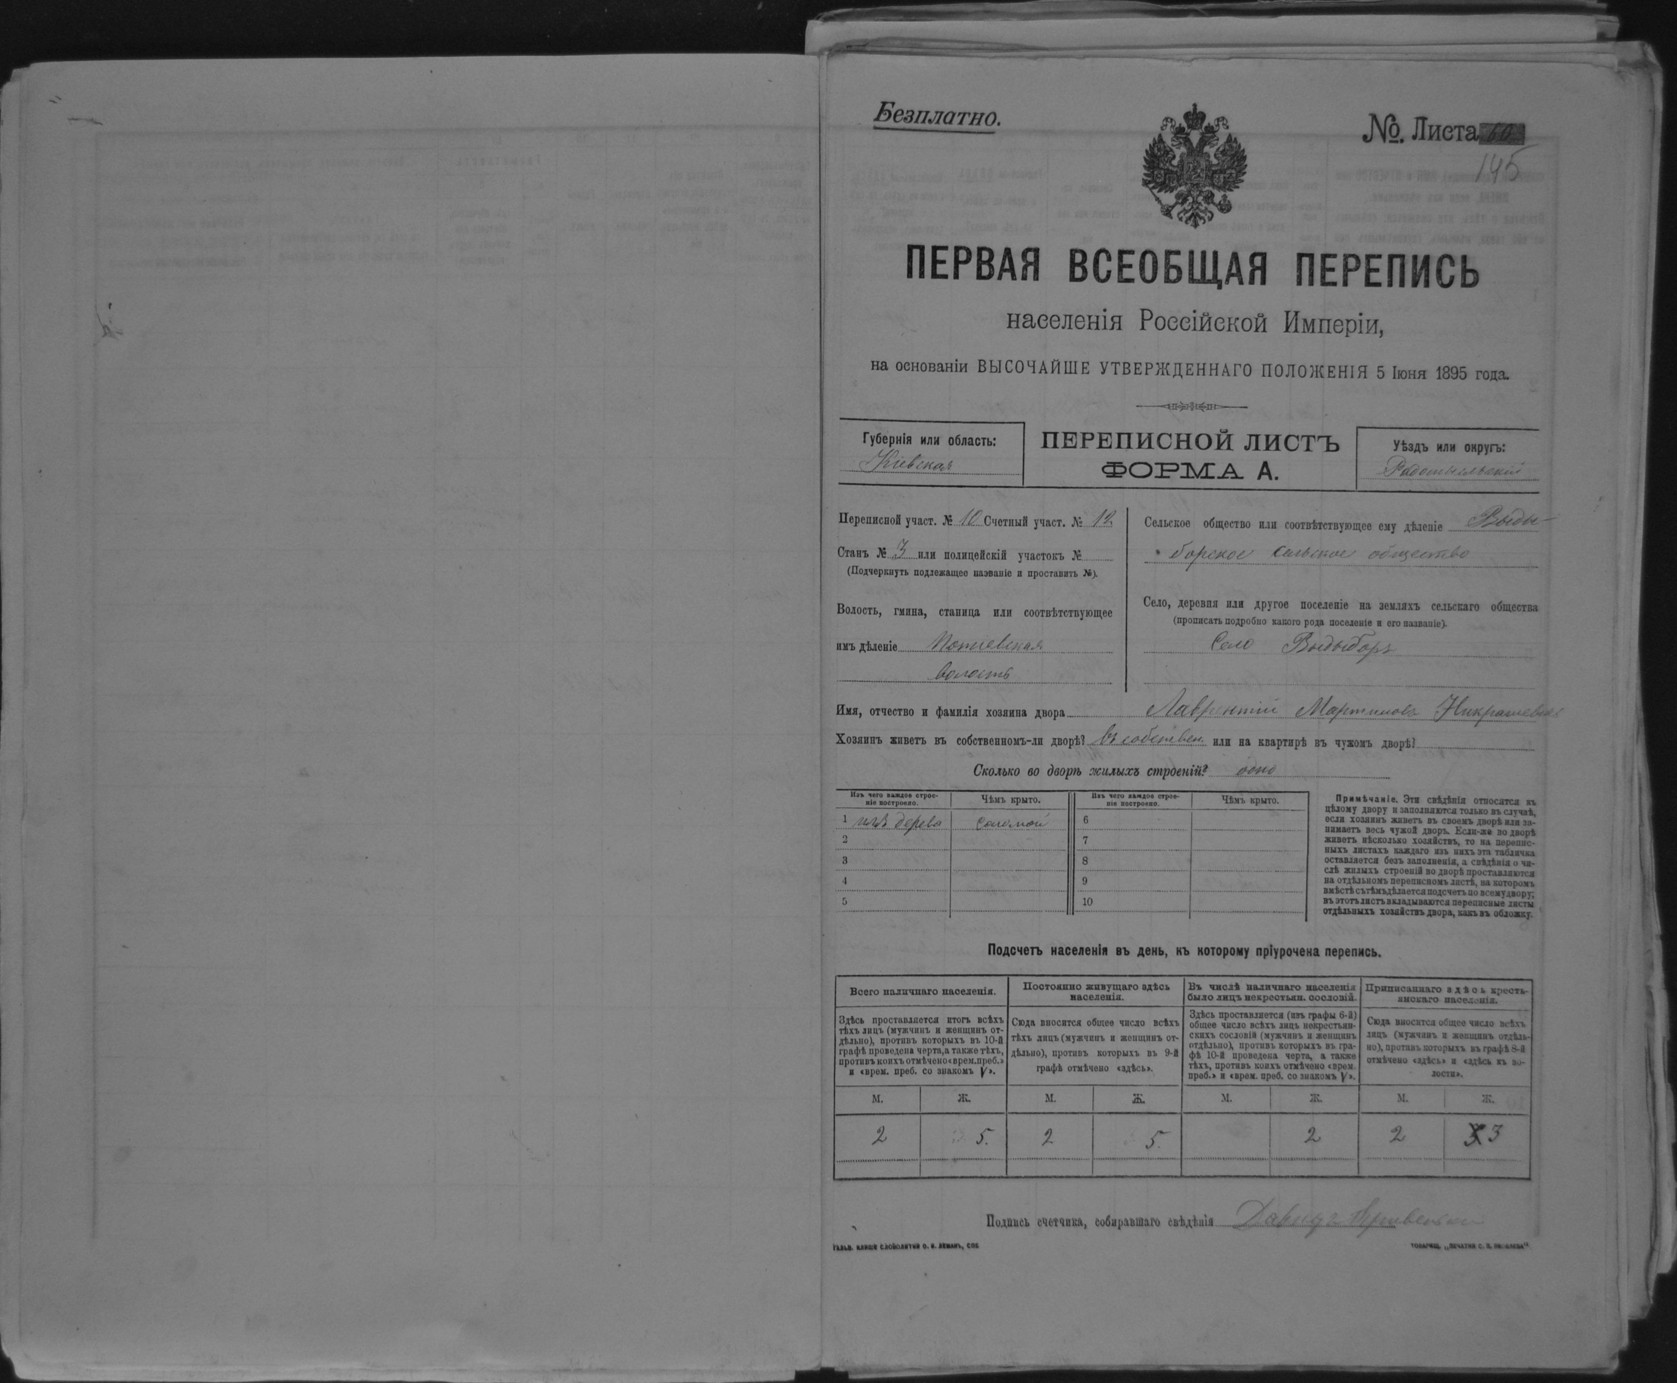 Безплатно.
№. Листа 60
145
ПЕРВАЯ ВСЕОБЩАЯ ПЕРЕПИСЬ
населенія Россійской Имперіи,
на основаніи ВЫСОЧАЙШЕ УТВЕРЖДЕННАГО ПОЛОЖЕНІЯ 5 Іюня 1895 года.
Губернія или область:
Кіевская
ПЕРЕПИСНОЙ ЛИСТЪ
ФОРМА А.
Уѣздъ или округъ:
Радомысльскій
Переписной участ. № 10 Счетный участ. № 12.
Станъ № 3 или полицейскій участокъ №
(Подчеркнуть подлежащее названіе и проставить №).
Волость, гмина, станица или соотвѣтствующее
имъ дѣленіе Потіевская
волость
Сельское общество или соотвѣтствующее ему дѣленіе Выды-
борское сельское общество
Село, деревня или другое поселеніе на земляхъ сельскаго общества
(прописать подробно какого рода поселеніе и его названіе).
Село Выдыборъ
Имя, отчество и фамилія хозяина двора Лаврентій Мартиновъ
Хозяинъ живетъ въ собственномъ-ли дворѣ? въ собствен. или на квартирѣ въ чужомъ дворѣ?
Сколько во дворѣ жилыхъ строеній? одно
Изъ чего каждое строе-
ніе построено.
Чѣмъ крыто.
Изъ чего каждое строе-
ніе построено.
Чѣмъ крыто.
1 изъ дерева соломой 6
2 7
3 8
4 9
5 10
Примѣчаніе. Эти свѣдѣнія относятся къ
цѣлому двору и заполняются только въ случаѣ,
если хозяинъ живетъ въ своемъ дворѣ или за-
нимаетъ весь чужой дворъ. Если-же во дворѣ
живетъ нѣсколько хозяйствъ, то на перепис-
ныхъ листахъ каждаго изъ нихъ эта табличка
оставляется безъ заполненія, а свѣдѣнія о чи-
слѣ жилыхъ строеній во дворѣ проставляются
на отдѣльномъ переписномъ листѣ, на которомъ
вмѣстѣ съ тѣмъ дѣлается подсчетъ по всему двору;
въ этотъ листъ вкладываются переписные листы
отдѣльныхъ хозяйствъ двора, какъ въ обложку.
Подсчетъ населенія въ день, къ которому пріурочена перепись.
Всего наличнаго населенія.
Здѣсь проставляется итогъ всѣхъ
тѣхъ лицъ (мужчинъ и женщинъ от-
дѣльно), противъ которыхъ въ 10-й
графѣ проведена черта, а также тѣхъ,
противъ коихъ отмѣчено «врем. преб.»
и «врем. преб. со знакомъ V».
Постоянно живущаго здѣсь
населенія.
Сюда вносится общее число всѣхъ
тѣхъ лицъ (мужчинъ и женщинъ от-
дѣльно), противъ которыхъ въ 9-й
графѣ отмѣчено «здѣсь».
Въ числѣ наличнаго населенія
было лицъ некрестьян. сословій.
Здѣсь проставляется (изъ графы 6-й)
общее число всѣхъ лицъ некрестьян-
скихъ сословій (мужчинъ и женщинъ
отдѣльно), противъ которыхъ въ гра-
фѣ 10-й проведена черта, а также
тѣхъ, противъ коихъ отмѣчено «врем.
преб.» и «врем. преб. со знакомъ V».
Приписаннаго здѣсь кресть-
янскаго населенія.
Сюда вносится общее число всѣхъ
лицъ (мужчинъ и женщинъ отдѣль-
но), противъ которыхъ въ графѣ 8-й
отмѣчено «здѣсь» и «здѣсь въ во-
лости».
М. Ж. М. Ж. М. Ж. М. Ж.
2 5. 2 5. 2 2 3
Подпись счетчика, собиравшаго свѣдѣнія Давидъ